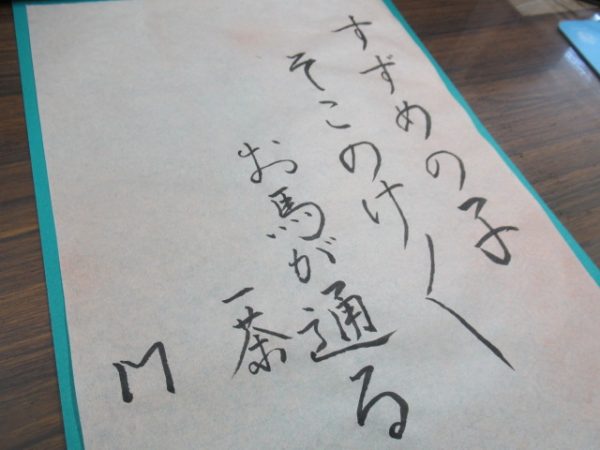 すずめの子
そこのけ〱
お馬が通る
一茶
M